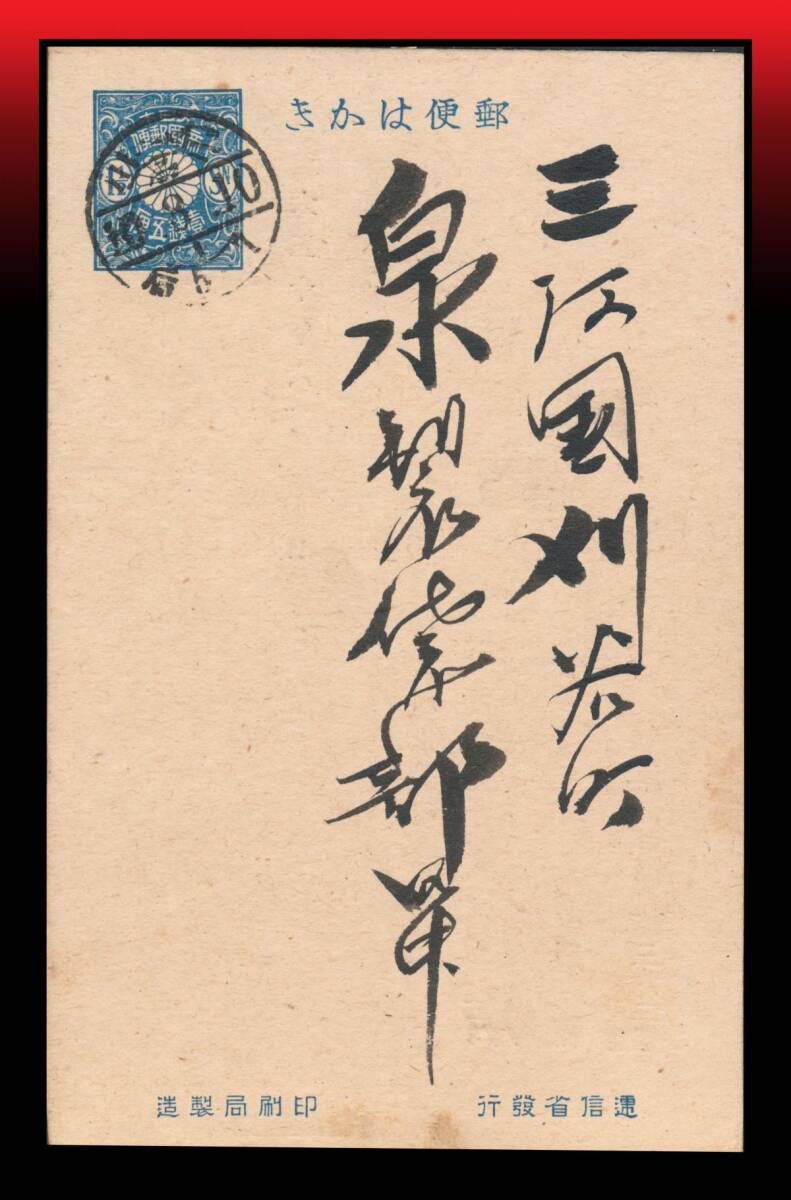 郵便はかき
帝國郵便
壹錢五厘
三河国刈谷町
泉製袋部
遞信省發行
印刷局製造